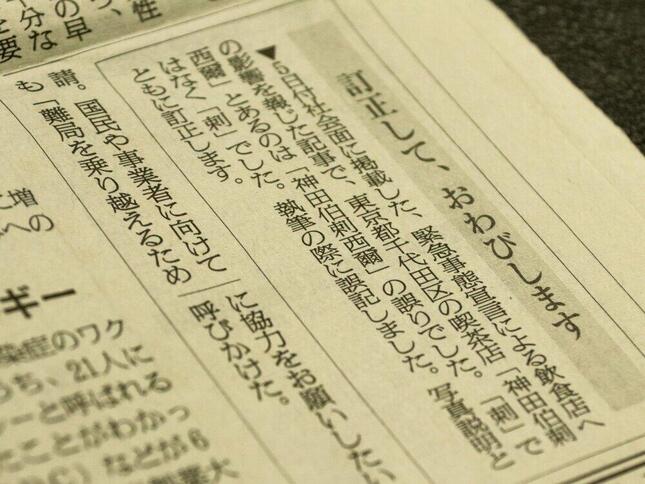 訂正して、おわびします
▼5日付け社会面に掲載した、緊急事態宣言による飲食店へ
の影響を報じた記事で、東京都千代田区の喫茶店「神田伯刺
西爾」とあるのは「神田伯剌西爾」の誤りでした。「刺」で
はなく「剌」でした。執筆の際に誤記しました。写真説明と
ともに訂正します。
請。国民や事業者に向けて
も「難局を乗り越えるため
に協力をお願いしたい
呼びかけた。
性
の早
分な
要
増
への
ギー
染症のワク
うち、21人に
ーと呼ばれる
たことがわかっ
C）などが6